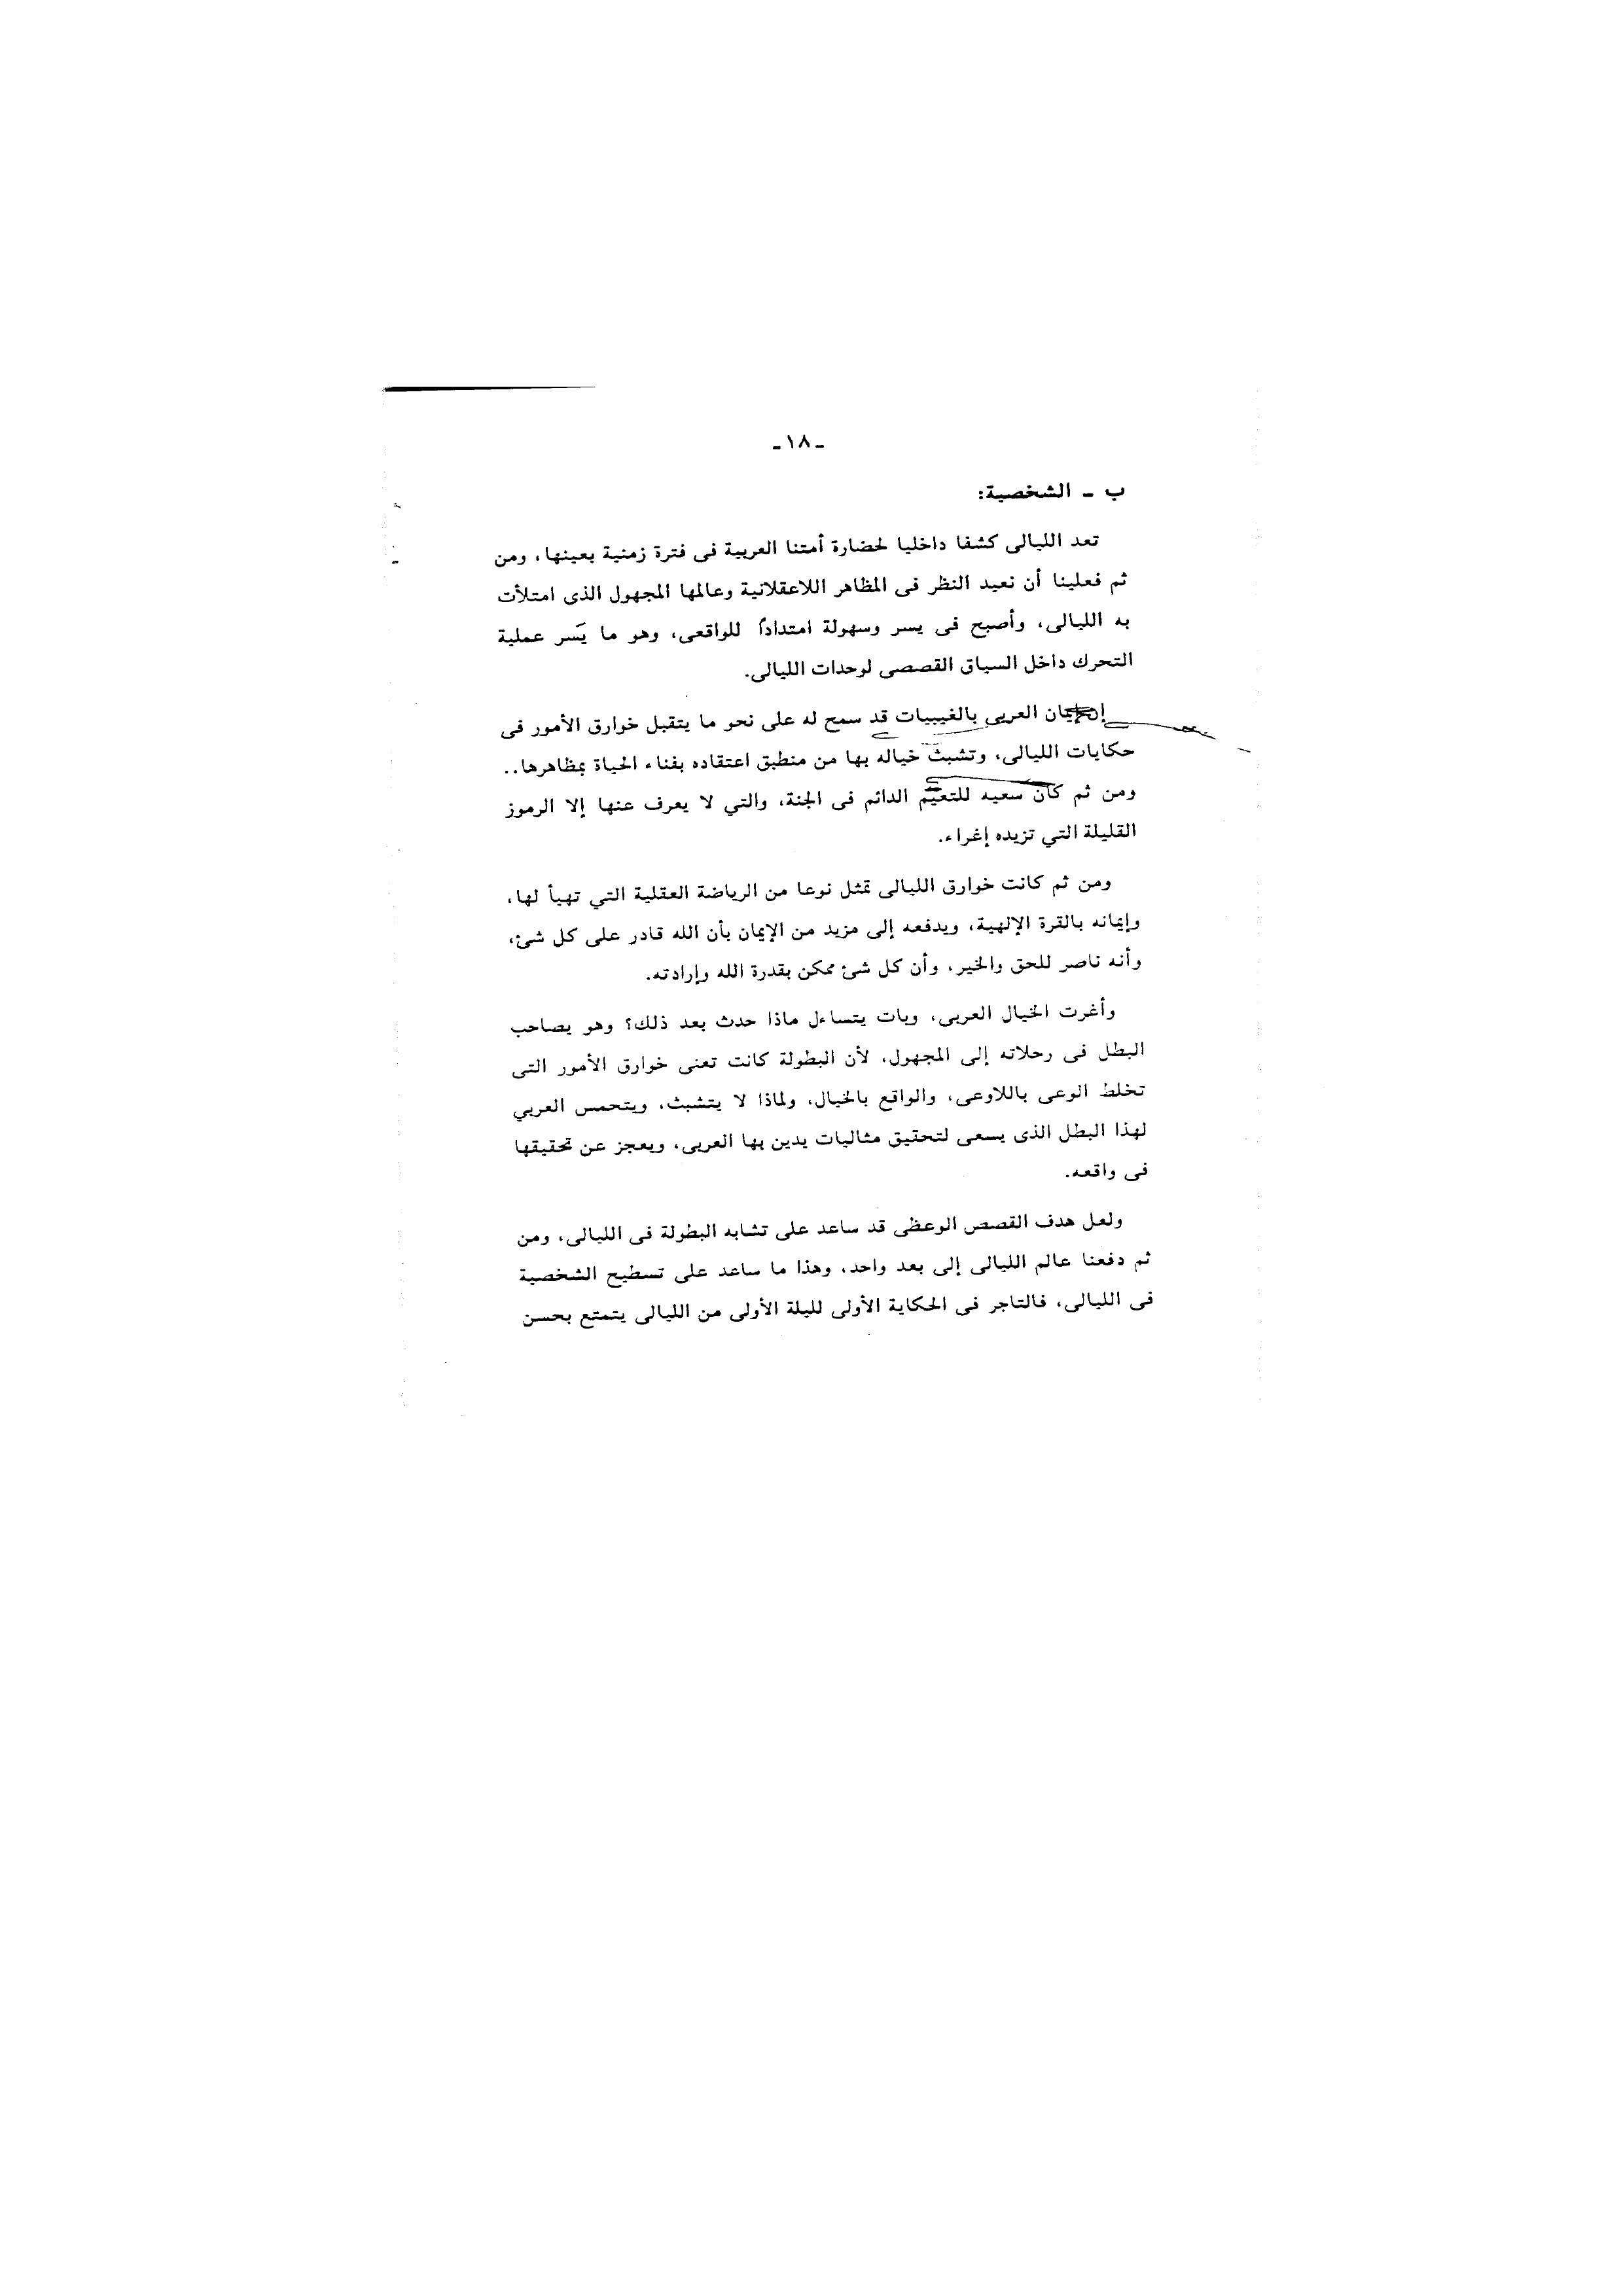 ـ ١٨ ـ
ب ـ الشخصية:
تعد الليالى كشفا داخليا لحضارة أمتنا العربية فى فترة زمنية بعينها، ومن
ثم فعلينا أن نعيد النظر فى المظاهر اللاعقلانية وعالمها المجهول الذى امتلأت
به الليالى، وأصبح فى يسر وسهولة امتداداً للواقعى، وهو ما يَسر عملية
التحرك داخل السياق القصصى لوحدات الليالى.
إن إيمان العربى بالغيبيات قد سمح له على نحو ما يتقبل خوارق الأمور فى
حكايات الليالى، وتشبث خياله بها من منطبق اعتقاده بفناء الحياة بمظاهرها..
ومن ثم كان سعيه للتعيم الدائم فى الجنة، والتي لا يعرف عنها إلا الرموز
القليلة التي تزيده إغراء.
ومن ثم كانت خوارق الليالى تمثل نوعا من الرياضة العقلية التي تهيأ لها،
وإيمانه بالقرة الإلهية، ويدفعه إلى مزيد من الإيمان بأن الله قادر على كل شئ،
وأنه ناصر للحق والخير، وأن كل شئ ممكن بقدرة الله وإرادته.
وأغرت الخيال العربى، وبات يتساءل ماذا حدث بعد ذلك؟ وهو يصاحب
البطل فى رحلاته إلى المجهول، لأن البطولة كانت تعنى خوارق الأمور التى
تخلط الوعى باللاوعى، والواقع بالخيال، ولماذا لا يتشبث، ويتحمس العربي
لهذا البطل الذى يسعى لتحقيق مثاليات يدين بها العربى، ويعجز عن تحقيقها
فى واقعه.
ولعل هدف القصص الوعظى قد ساعد على تشابه البطولة فى الليالى، ومن
ثم دفعنا عالم الليالى إلى بعد واحد، وهذا ما ساعد على تسطيح الشخصية
فى الليالى، فالتاجر فى الحكاية الأولى لليلة الأولى من الليالى يتمتع بحسن